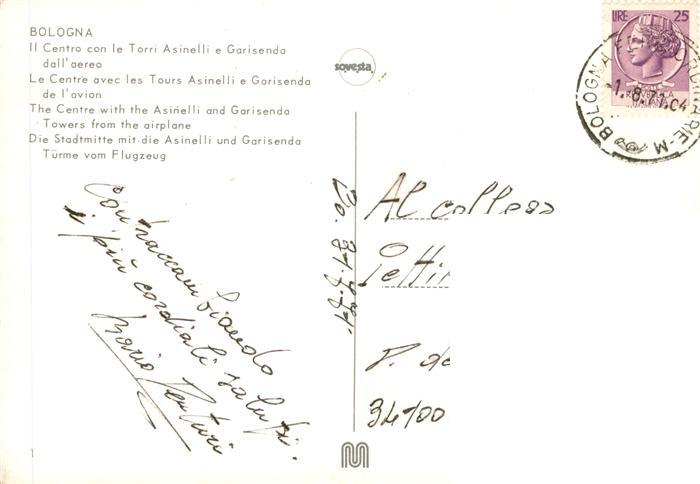 BOLOGNA
Il Centro con le Torri Asinelli e Garisenda
dall'aereo
Le Centre avec les Tours Asinelli e Garisenda
de l'avion
The Centre with the Asinelli and Garisenda
Towers from the airplane
Die Stadtmitte mit die Asinelli und Garisenda
Türme vom Flugzeug
sovesta
LIRE 25
BOLOGNA
Contraccambiando
i più cordiali saluti.
Mario Venturi
Bo.
Al collega
34100
1